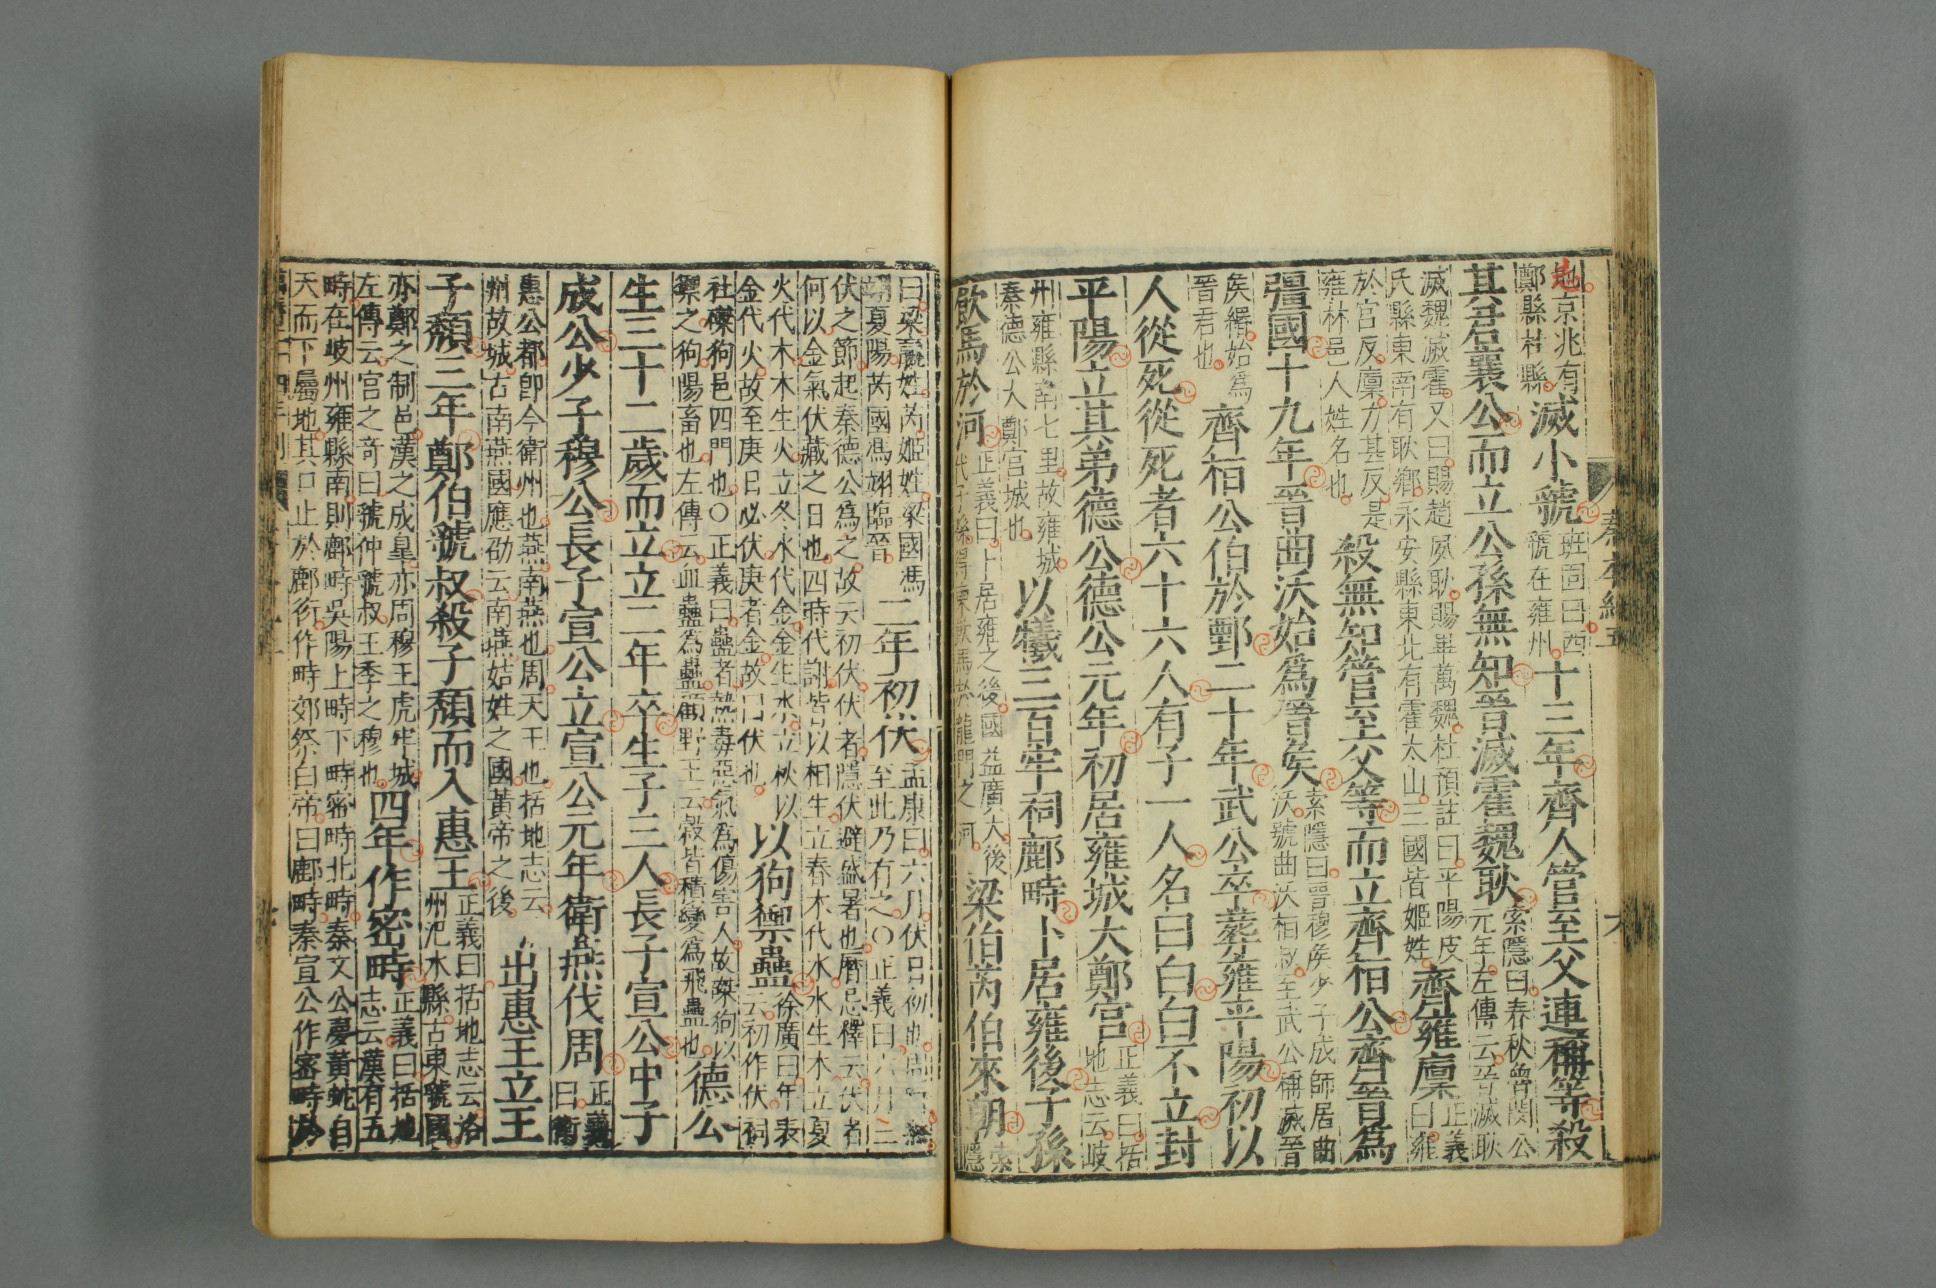 地京兆有
鄭縣杜縣
滅小虢
班固曰西
虢在雍州
十三年齊人管至父連稱等殺
其君襄公而立公孫無知晉滅霍魏耿
索隱曰春秋魯閔公
元年左傳云晉滅耿
滅魏滅霍又曰賜趙夙耿賜畢萬魏杜預註曰平陽皮
氏縣東南有耿鄉永安縣東北有霍太山三國皆姬姓
齊雍廩
正義
曰雍
於宮反廩力甚反是
雍林邑人姓名也
殺無知管至父等而立齊桓公齊晉為
彊國十九年晉曲沃始為晉矦
索隱曰晉穆矦少子成師居曲
沃號曲沃桓叔至武公稱滅晉
矦緡始為
晉君也
齊桓公伯於鄄二十年武公卒葬雍平陽初以
人從死從死者六十六人有子一人名曰白白不立封
平陽立其弟德公德公元年初居雍城大鄭宮
正義曰括
地志云岐
州雍縣南七里故雍城
秦德公大鄭宮城也
以犧三百牢祠鄜畤卜居雍後子孫
飲馬於河
正義曰卜居雍之後國益廣大後
代子孫得東飲馬於龍門之河
梁伯芮伯來朝
索
隱
曰梁嬴姓芮姬姓梁國馮
翊夏陽芮國馮翊臨晉
二年初伏
孟康曰六月伏日初也周
至此乃有之○正義曰六月三
伏之節起秦德公為之故云初伏伏者隱伏避盛暑也曆忌釋云伏者
何以金氣伏藏之日也四時代謝皆以相生立春木代水水生木立夏
火代木木生火立冬水代金金生水立秋以
金代火故至庚日必伏庚者金故曰伏也
以狗禦蠱
徐廣曰年表
云初作伏祠
社磔狗邑四門也○正義曰蠱者熱毒惡氣為傷害人故磔狗以
禦之狗陽畜也左傳云皿蟲為蠱顧野王云穀皆積變為飛蠱也
德公
生三十二歲而立立二年卒生子三人長子宣公中子
成公少子穆公長子宣公立宣公元年衛燕伐周
正義
曰衛
惠公都即今衛州也燕南燕也周天王也括地志云
州故城古南燕國應劭云南燕姞姓之國黃帝之後
出惠王立王
子頹三年鄭伯虢叔殺子頹而入惠王
正義曰括地志云洛
州汜水縣古東虢國
亦鄭之制邑漢之成皐亦周穆王虎牢城
左傳云宮之奇曰虢仲虢叔王季之穆也
四年作密畤
正義曰括地
志云漢有五
畤在岐州雍縣南則鄜畤吳陽上畤下畤密畤北畤秦文公夢黃蛇自
天而下屬地其口止於鄜衍作畤郊祭白帝曰鄜畤秦宣公作密畤於
秦本紀五